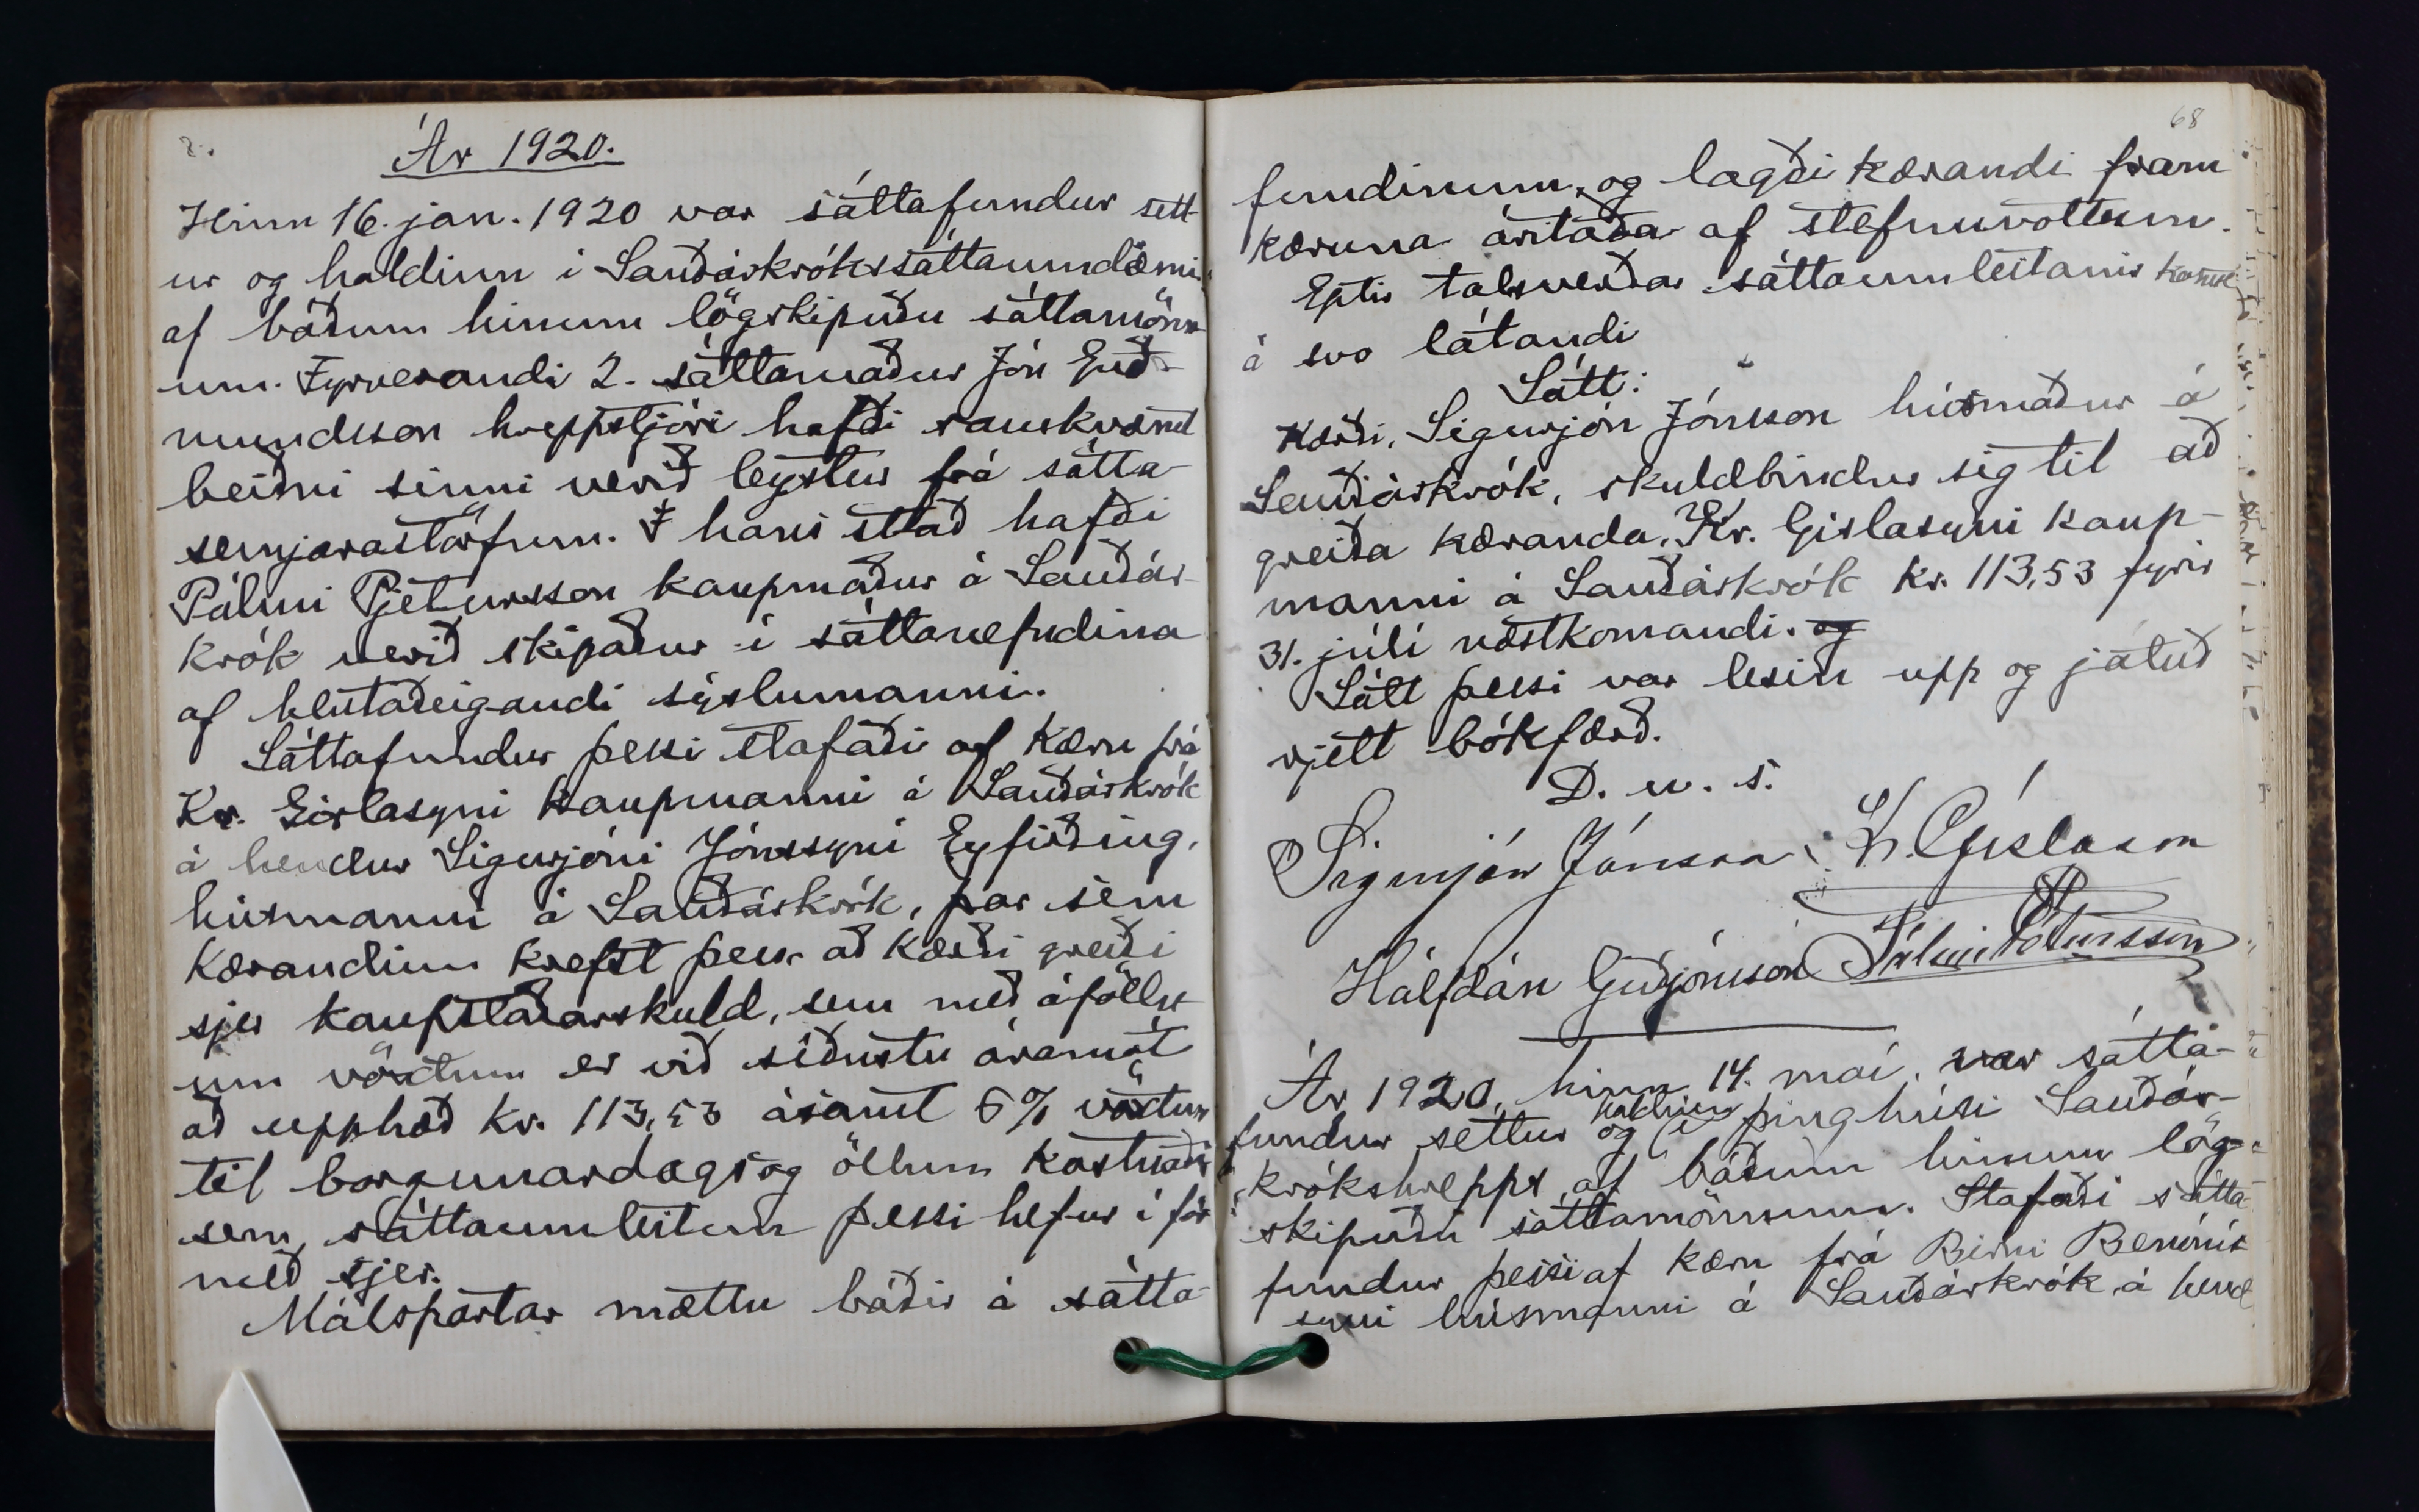 Ár 1920.
Hinn 16. jan. 1920 var sáttafundur sett-
ur og haldinn í Sauðárkrókssáttaumdæmi
af báðum hinum lögskipuðu sáttamönn-
um. Fyrverandi 2. sáttamaður Jón Guð-
mundsson hreppstjóri hafði samkvæmt
beiðni sinni verið leystur frá sátta-
semjarastörfum. Í hans stað hafði
Pálmi Pjetursson kaupmaður á Sauðár-
krók verið skipaður í sáttanefndina
af hlutaðeigandi sýslumanni.
Sáttafundur þessi stafaði af kæru frá
Kr. Gíslasyni kaupmanni á Sauðárkrók
á hendur Sigurjóni Jónssyni Eyfirðing,
húsmanni á Sauðárkrók, þar sem
kærandinn krefst þess að kærði greiði
sjer kaupstaðarskuld, sem með áfölln-
um vöxtum er við síðustu áramót
að upphæð kr. 113,53 ásamt 6% vöxtum
til borgunardags og öllum kostnaði
sem sáttaumleitun þessi hefur í för
með sjer.
Málspartar mættu báðir á sátta-
68
fundinum, og lagði kærandi fram
kæruna áritaða af stefnuvottum.
Eptir talsverðar sáttaumleitanir komst
á svo látandi
Sátt:
Kærði, Sigurjón Jónsson húsmaður á
Sauðárkrók, skuldbindur sig til að
greiða kæranda, Kr. Gislasyni kaup-
manni á Sauðárkrók kr. 113,53 fyrir
31. júlí næstkomandi. og
Sátt þessi var lesin upp og játuð
rjett bókfærð.
D. u. s.
Sigurjón Jónsson Kr. Gíslason
Hálfdán Guðjónsson Pálmi Pétursson
Ár 1920, hinn 14. maí, var sátta-
fundur settur og haldinn í þinghúsi Sauðár-
krókshrepps af báðum hinum lög-
skipuðu sáttamönnum. Stafaði sátta-
fundur þessi af kæru frá Birni Benónís
syni húsmanni á Sauðárkrók, á hend